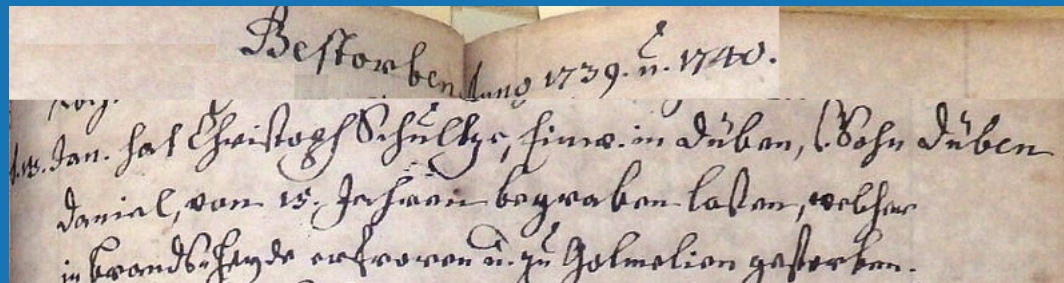 Bestorben Anno 1739. u. 1740.
Jan. hat Christoph Schultze, Einw. in Düben, Sohn Düben
Daniel, von 15. Jahren begraben laßen, welcher
in brands-Heyde erfroren u. zu Golmelien gestorben.